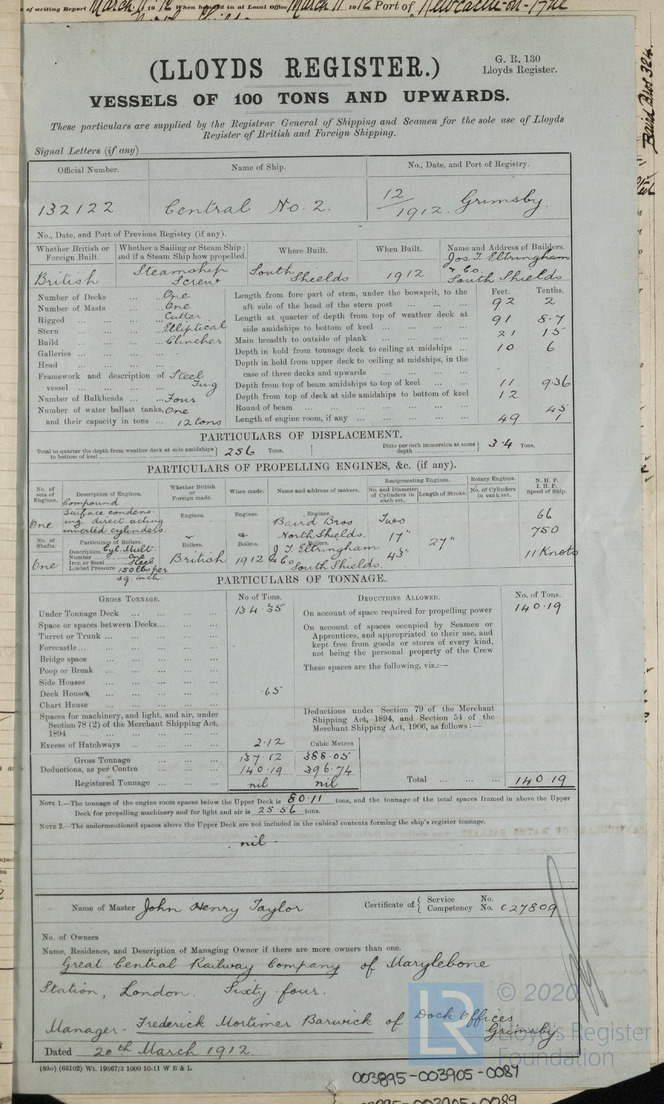 of writing Report March 11 1912 When handed in at Local Office March 11 1912 Port of Newcastle-on-Tyne
(LLOYDS REGISTER.)
G. R. 130
Lloyds Register.
VESSELS OF 100 TONS AND UPWARDS.
These particulars are supplied by the Registrar General of Shipping and Seamen for the sole use of Lloyds
Register of British and Foreign Shipping.
Signal Letters (if any)
Official Number. Name of Ship. No., Date, and Port of Registry.
132122 Central No. 2. 12/1912. Grimsby.
No., Date, and Port of Previous Registry (if any).
Whether British or Foreign Built. Whether a Sailing or Steam Ship; and if a Steam Ship how propelled. Where Built. When Built. Name and Address of Builders.
British Steamship Screw South Shields 1912 Jos. T. Eltringham & Co. South Shields
Number of Decks One
Number of Masts One
Rigged Cutter
Stern Elliptical
Build Clincher
Galleries
Head
Framework and description of vessel Steel Tug
Number of Bulkheads Four
Number of water ballast tanks, One
and their capacity in tons 12 tons
Feet. Tenths.
Length from fore part of stem, under the bowsprit, to the
aft side of the head of the stern post 92 2
Length at quarter of depth from top of weather deck at
side amidships to bottom of keel 91 8.7
Main breadth to outside of plank 21 15
Depth in hold from tonnage deck to ceiling at midships 10 6
Depth in hold from upper deck to ceiling at midships, in the
case of three decks and upwards
Depth from top of beam amidships to top of keel 11 9.36
Depth from top of deck at side amidships to bottom of keel 12
Round of beam 45
Length of engine room, if any 49 1
PARTICULARS OF DISPLACEMENT.
Total to quarter the depth from weather deck at side amidships to bottom of keel 256 Tons.
Ditto per inch immersion at same depth 3.4 Tons.
PARTICULARS OF PROPELLING ENGINES, &c. (if any).
No. of sets of Engines. Description of Engines. Whether British or Foreign made. When made. Name and address of makers. Reciprocating Engines. No. and Diameter of Cylinders in each set. Length of Stroke. Rotary Engines. No. of Cylinders in each set. N. H. P. I. H. P. Speed of Ship.
One Compound Surface condensing direct acting inverted cylinders
Engines. Engines. Engines.
Baird Bros North Shields. Two 17" 27" 66 750
No. of Shafts. Particulars of Boilers. Boilers. Boilers. Boilers.
One Description Cyl. Mult.
Number One
Iron or Steel Steel
Loaded Pressure 150 lbs per sq. inch
British 1912 J. T. Eltringham & Co South Shields. 11 Knots
PARTICULARS OF TONNAGE.
GROSS TONNAGE. No of Tons. DEDUCTIONS ALLOWED. No. of Tons.
Under Tonnage Deck 134.35
Space or spaces between Decks
Turret or Trunk
Forecastle
Bridge space
Poop or Break
Side Houses
Deck Houses .65
Chart House
Spaces for machinery, and light, and air, under
Section 78 (2) of the Merchant Shipping Act,
1894
Excess of Hatchways 2.12 Cubic Metres
Gross Tonnage 137.12 388.05
Deductions, as per Contra 140.19 396.74
Registered Tonnage nil nil
On account of space required for propelling power 140.19
On account of spaces occupied by Seamen or
Apprentices, and appropriated to their use, and
kept free from goods or stores of every kind,
not being the personal property of the Crew
These spaces are the following, viz.:—
Deductions under Section 79 of the Merchant
Shipping Act, 1894, and Section 54 of the
Merchant Shipping Act, 1906, as follows:—
Total 140.19
NOTE 1.—The tonnage of the engine room spaces below the Upper Deck is 80.11 tons, and the tonnage of the total spaces framed in above the Upper
Deck for propelling machinery and for light and air is 25.56 tons.
NOTE 2.—The undermentioned spaces above the Upper Deck are not included in the cubical contents forming the ship's register tonnage.
nil
Name of Master John Henry Taylor Certificate of { Service No.
Competency No. 027809
No. of Owners
Name, Residence, and Description of Managing Owner if there are more owners than one.
Great Central Railway Company of Marylebone
Station, London. Sixty-four.
Manager - Frederick Mortimer Barwick of Dock Offices
Grimsby
Dated 20th March 1912
(83o) (65102) Wt. 19567/3 1000 10-11 W B & L
003895-003905-0087
Baird Bros 324
LR
© 2020
Lloyd's Register
Foundation